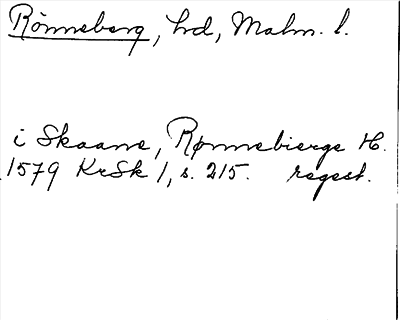 Rönneberg, hd, Malm. l.
i Skaane, Rønnebierge H.
1579 KrSk 1, s. 215. regest.